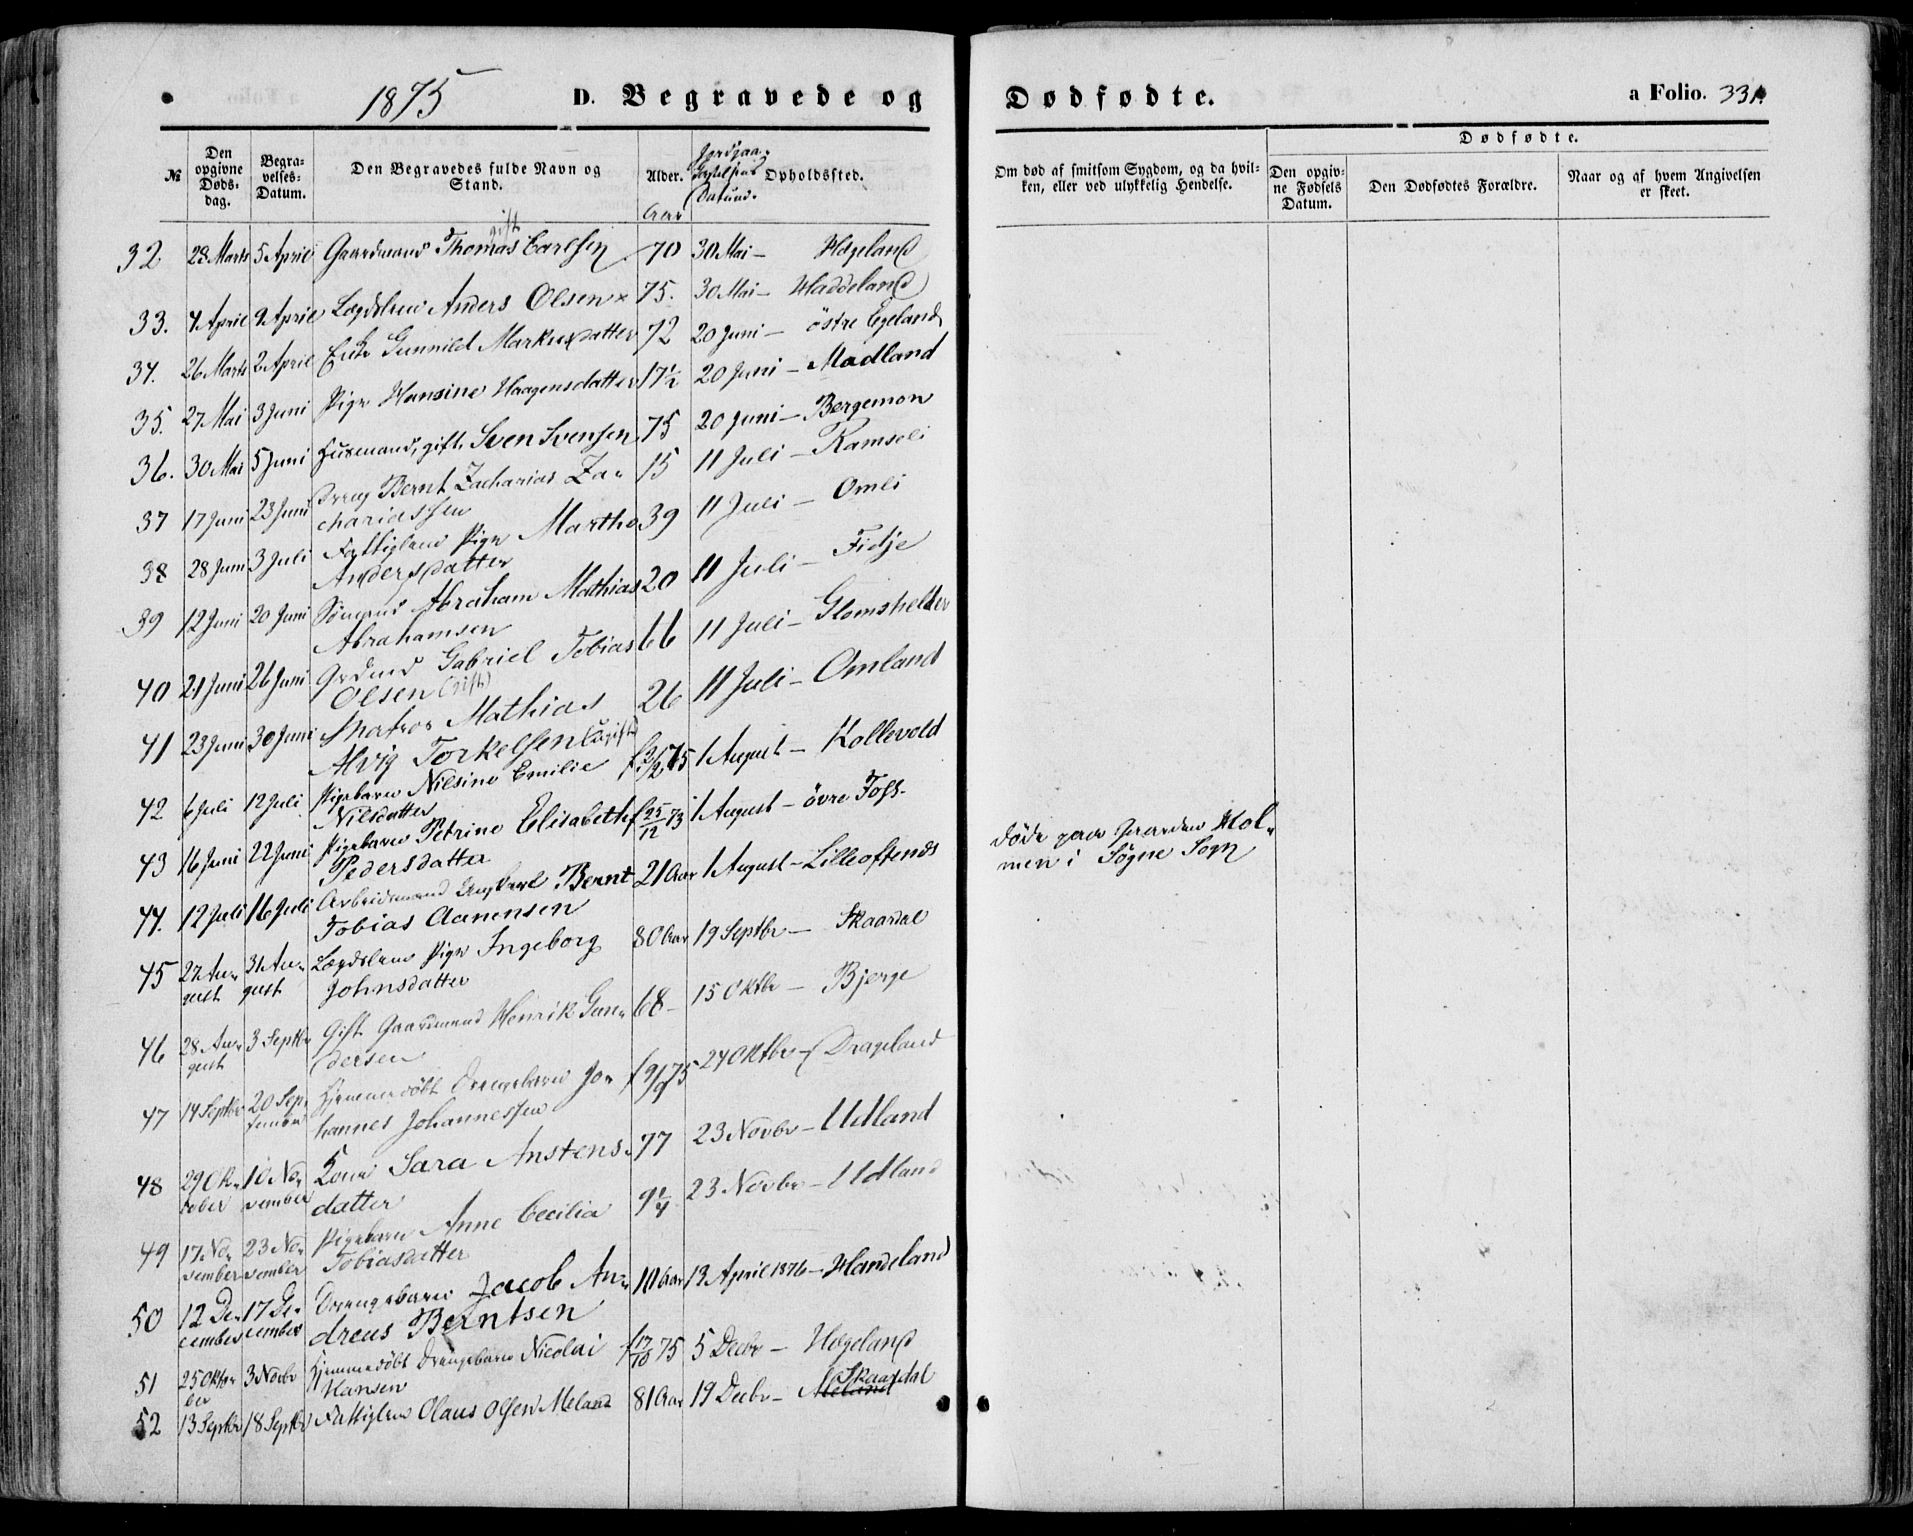 1875 D. Begravede og Dødfødte. a Folio. 331.
№ Den opgivne Døds-dag. Begra-velses-Datum. Den Begravedes fulde Navn og Stand. Alder. Aar Jordpaa-kastelsens Datum. Opholdssted. Om død af smitsom Sygdom, og da hvil-ken, eller ved ulykkelig Hendelse. Dødfødte. Den opgiv-ne Fødsels Datum. Den Dødfødtes Forældre. Naar og af hvem Angivelsen er skeet.
gift
32. 28 Marts 5 April Gaardmand Thomas Carlsen 70 30 Mai – Hægeland
33. 4 April 9 April Lægdslem Anders Olsen 75. 30 Mai – Haddeland
34. 26 Marts 2 April Enke Gunnild Markusdatter 72 20 Juni – østre Egeland
35. 27 Mai 3 Juni Pige Hansine Haagensdatter 17½ 20 Juni – Madland
36. 30 Mai 5 Juni Husmand, gift. Sven Svensen 75 20 Juni – Bergemon
37 17 Juni 23 Juni Dreng Bernt Zacharias Za- 15 11 Juli – Ramseli
chariassen
38 28 Juni 3 Juli Fattiglem Pige Martha 39 11 Juli – Omli
Andersdatter
39 12 Juni 20 Juni Sømand Abraham Mathias 20 11 Juli – Fidje
Abrahamsen
40 21 Juni 26 Juni Grdmd Gabriel Tobias 66 11 Juli – Glomshelder
Olsen (gift)
41 23 Juni 30 Juni Matros Mathias 26 11 Juli – Omland
Alvig Torkelsen (ugift)
42 6 Juli 12 Juli Pigebarn Nilsine Emilie 1 August – Kollevold
Nilsdatter
43 16 Juni 22 Juni Pigebarn Petrine Elisabeth f 25/12 73 1 August – øvre Foss.
Pedersdatter
44. 12 Juli 16 Juli Arbeidsmand Ungkarl Bernt 21 Aar 1 August – Lilleoftends døde paa Gaarden Hol-
Tobias Aanensen men i Søgne Sogn
45 27 Au- 31 Au- Lægdslem Pige Ingeborg 80 Aar 19 Septbr – Skaardal
gust gust Johnsdatter
46 28 Au- 3 Septbr Gift Gaardmand Henrik Gun- 68 – 15 Oktbr – Bjerge
gust dersen
47 14 Septbr 20 Sep- Hjemmedøbt Drengebarn Jo- f 9/9 75 24 Oktbr – Drageland
tember hannes Johannessen
48 29 Ok- 10 No- Kone Sara Anstens- 77 23 Novbr – Udland
tober vember datter
49 17 No- 23 No- Pigebarn Anne Cecilia 9¼ 23 Novbr – Udland
vember vember Tobiasdatter
50 12 De- 17 De- Drengebarn Jacob An- 10 Aar 13 April 1876 – Handeland
cember cember dreas Berntsen
51 25 Okto- 3 Novbr Hjemmedøbt Drengebarn Nicolai f 17/10 75 5 Decbr – Hægeland
ber Hansen
Skaardal
52 13 Septbr 18 Septbr Fattiglem Olaus Olsen Meland 81 Aar 19 Decbr – Meland